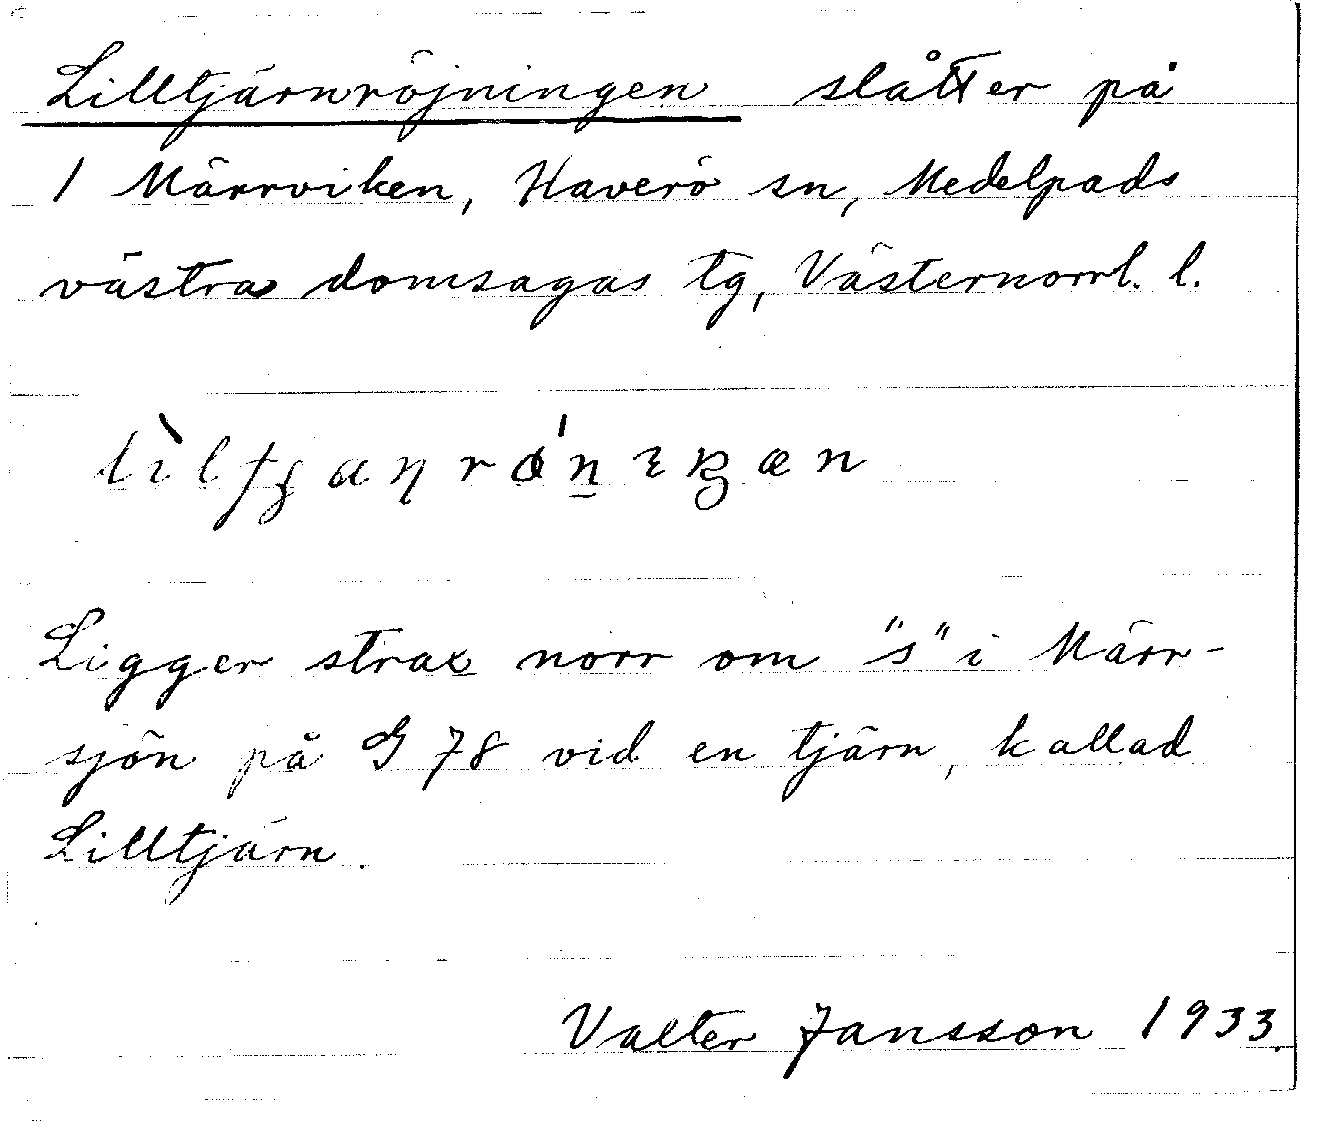 Lilltjärnröjningen slåtter på
1 Märrviken, Haverö sn, Medelpads
västra domsagas tg, Västernorrl. l.
Ligger strax norr om "s" i Märr-
sjön på G 78 vid en tjärn, kallad
Lilltjärn.
Valter Jansson 1933.